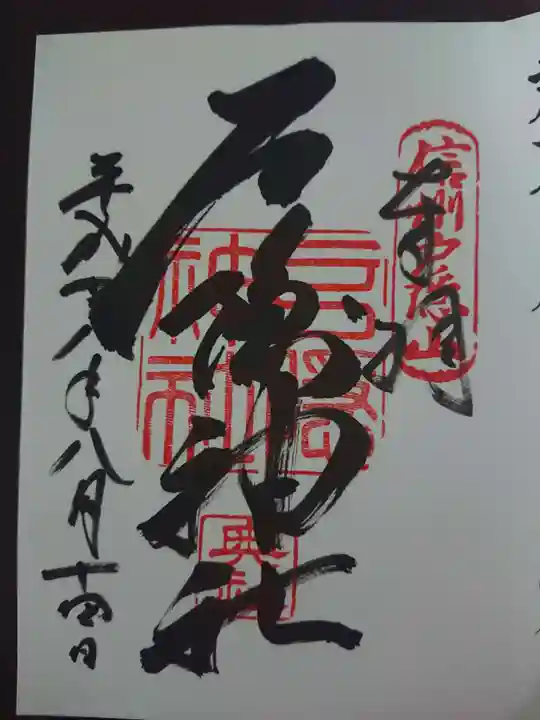 奉拝
信州戸隠山
戸隠神社
戸隠神社
奥社
平成廿八年八月十四日